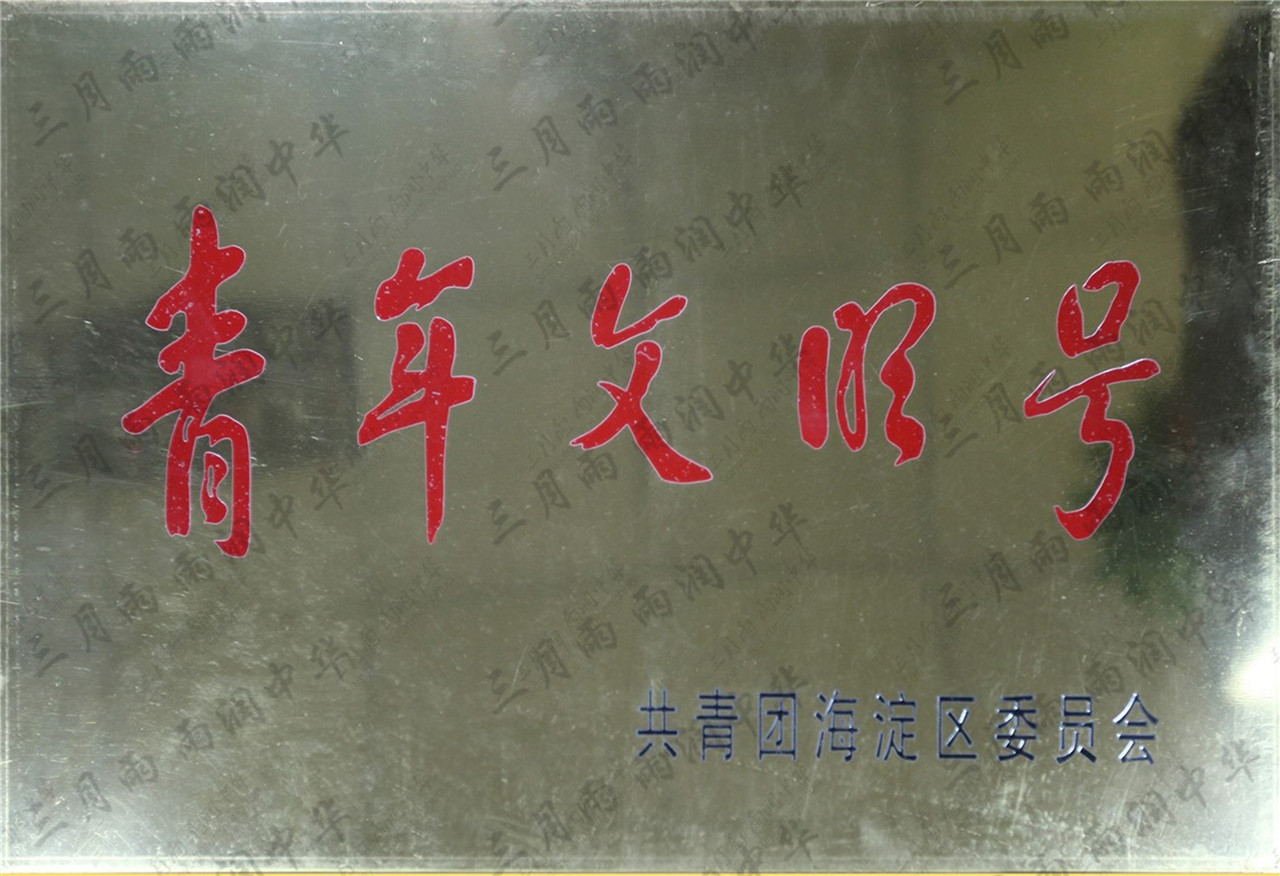 青年文明号
共青团海淀区委员会
三月雨雨润中华